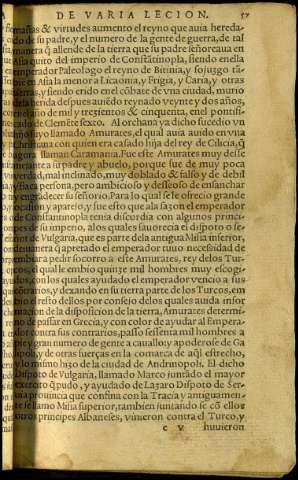 DE VARIA LECION. 57
mañas & virtudes aumento el reyno que auia hereda-
do de su padre, y el numero de la gente de guerra, de tal
manera q̃ allende de la tierra que su padre señoreaua en
Asia quito del imperio de Cõstãtinopla, siendo enella
emperador Paleologo el reyno de Bitinia, y sojuzgo tã-
bien en Asia la menor a Licaonia, y Frigia, y Caria, y otras
tierras, y siendo erido en el cõbate de vna ciudad, murio
della herida despues auiẽdo reynado veynte y dos años,
en el año de mil y trezientos & cinquenta, en el pontifi-
cado de Clemẽte sexto. Al orchana ya dicho sucedio vn
hijo suyo llamado Amurates, el qual auia auido en vna
Christiana con quien era casado hija del rey de Cilicia, q̃
agora llaman Caramania. Fue este Amurates muy desse
mejante a su padre y abuelo, porque fue de muy poca
verdad, mal inclinado, muy doblado & falso y de debil
y flaca persona, pero ambicioso y desseoso de ensanchar
y engrãdecer su señorio. Para lo qual se le ofrecio grande
ocasion y aparejo, y fue esto que ala sazon el emperador
de Constantinopla tenia discordia con algunos princi-
pes de su imperio, a los quales fauorecia el dispoto o se-
ñor de Vulgaria, que es parte dela antigua Misia inferior,
en manera q̃ apretado el emperador tuuo necessidad de
embiar a pedir socorro a este Amurates, rey delos Tur-
cos, el qual le embio quinze mil hombres muy escogi-
dos, con los quales ayudado el emperador vencio a sus
contrarios, y dexando en su tierra parte de los Turcos, em
bio el resto dellos por consejo delos quales auida infor
macion de la disposicion de la tierra, Amurates determi
no de passar en Grecia, y con color de ayudar al Empera
dor contra sus contrarios, passo sesenta mil hombres a
pie y gran numero de gente a cauallo: y apoderose de Ga
lipol, y de otras fuerças en la comarca de aq̃l estrecho,
y lo mismo hizo de la ciudad de Andrinopoli. El dicho
Dispoto de Vulgaria, llamado Marco juntãdo el mayor
exercito q̃ pudo, y ayudado de Lazaro Dispoto de Ser-
uia prouincia que confina con la Tracia y antiguamen-
te se llamo Misia superior, tambien juntando se cõ ellos
otros principes Albaneses, vinieron contra el Turco, y
c v huuieron